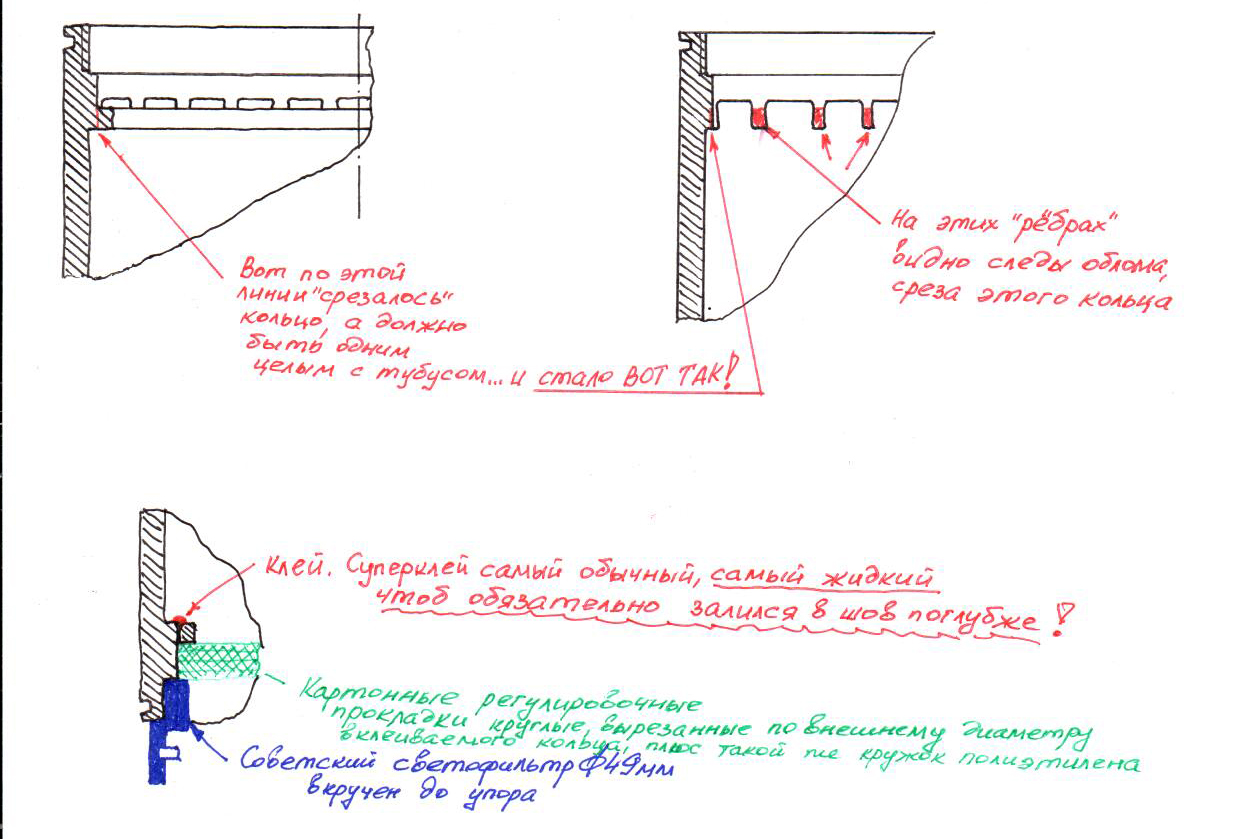 Вот по этой
линии "срезалось"
кольцо, а должно
быть одним
целым с тубусом... и стало ВОТ ТАК!
На этих "рёбрах"
видно следы облома,
среза этого кольца
Клей. Суперклей самый обычный, самый жидкий
чтоб обязательно залился в шов поглубже!
Картонные регулировочные
прокладки круглые, вырезанные по внешнему диаметру
вклеиваемого кольца, плюс такой же кружок полиэтилена
Советский светофильтр Ф49мм
вкручен до упора